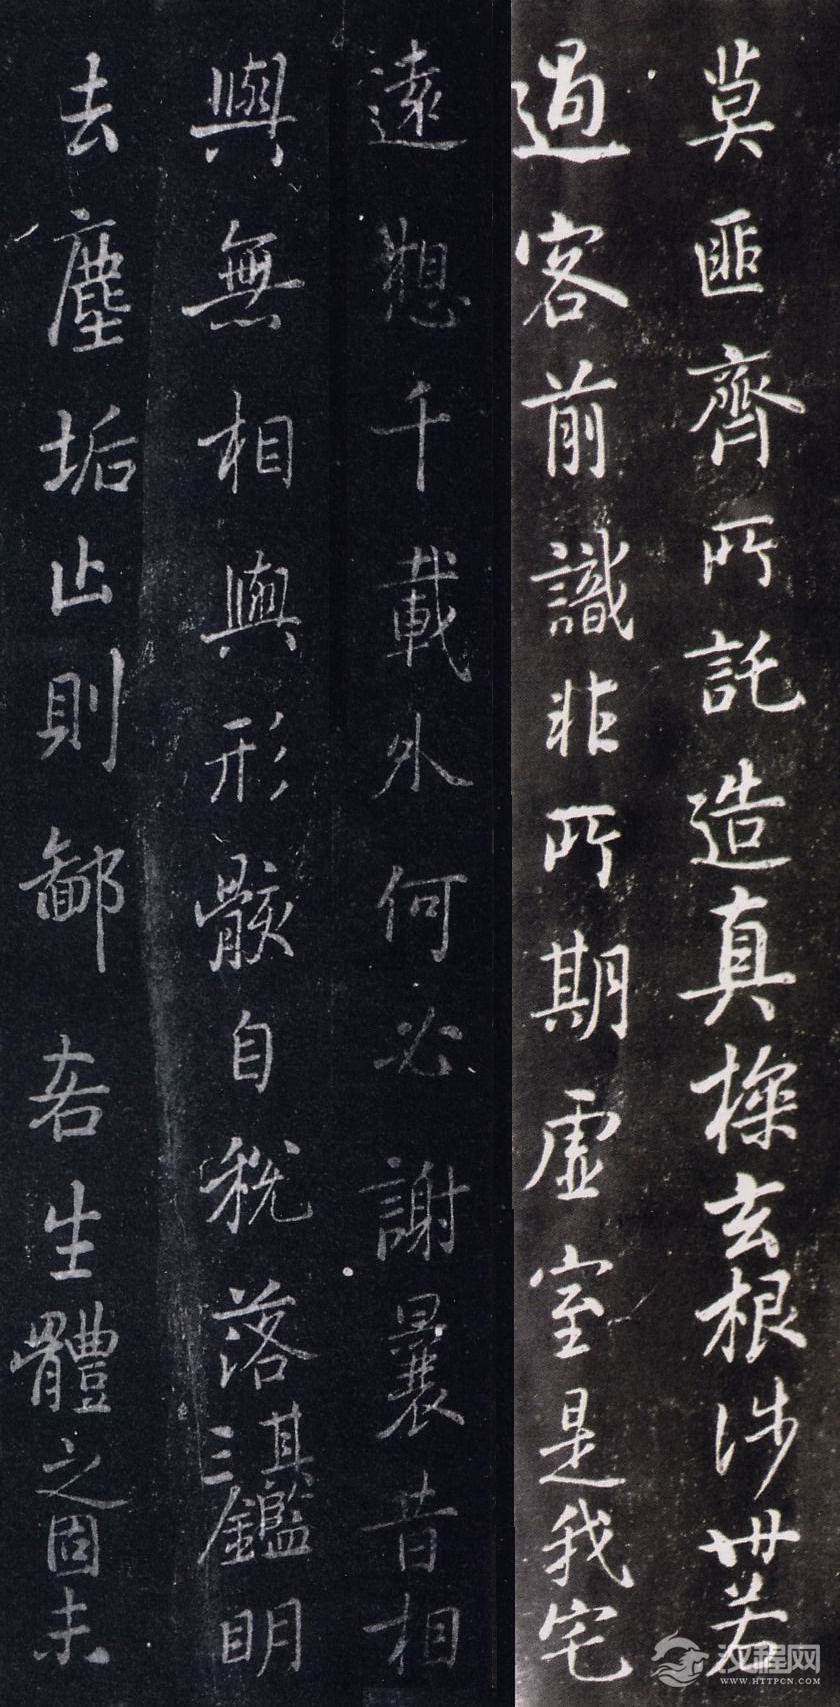 莫匪齊所託造真探玄根涉世若
過客前識非所期虛室是我宅
遠想千載外何必謝曩昔相
與無相與形骸自脫落其三鑑明
去塵垢止則鄙吝生體之固未
汉程网
WWW.HTTPCN.COM